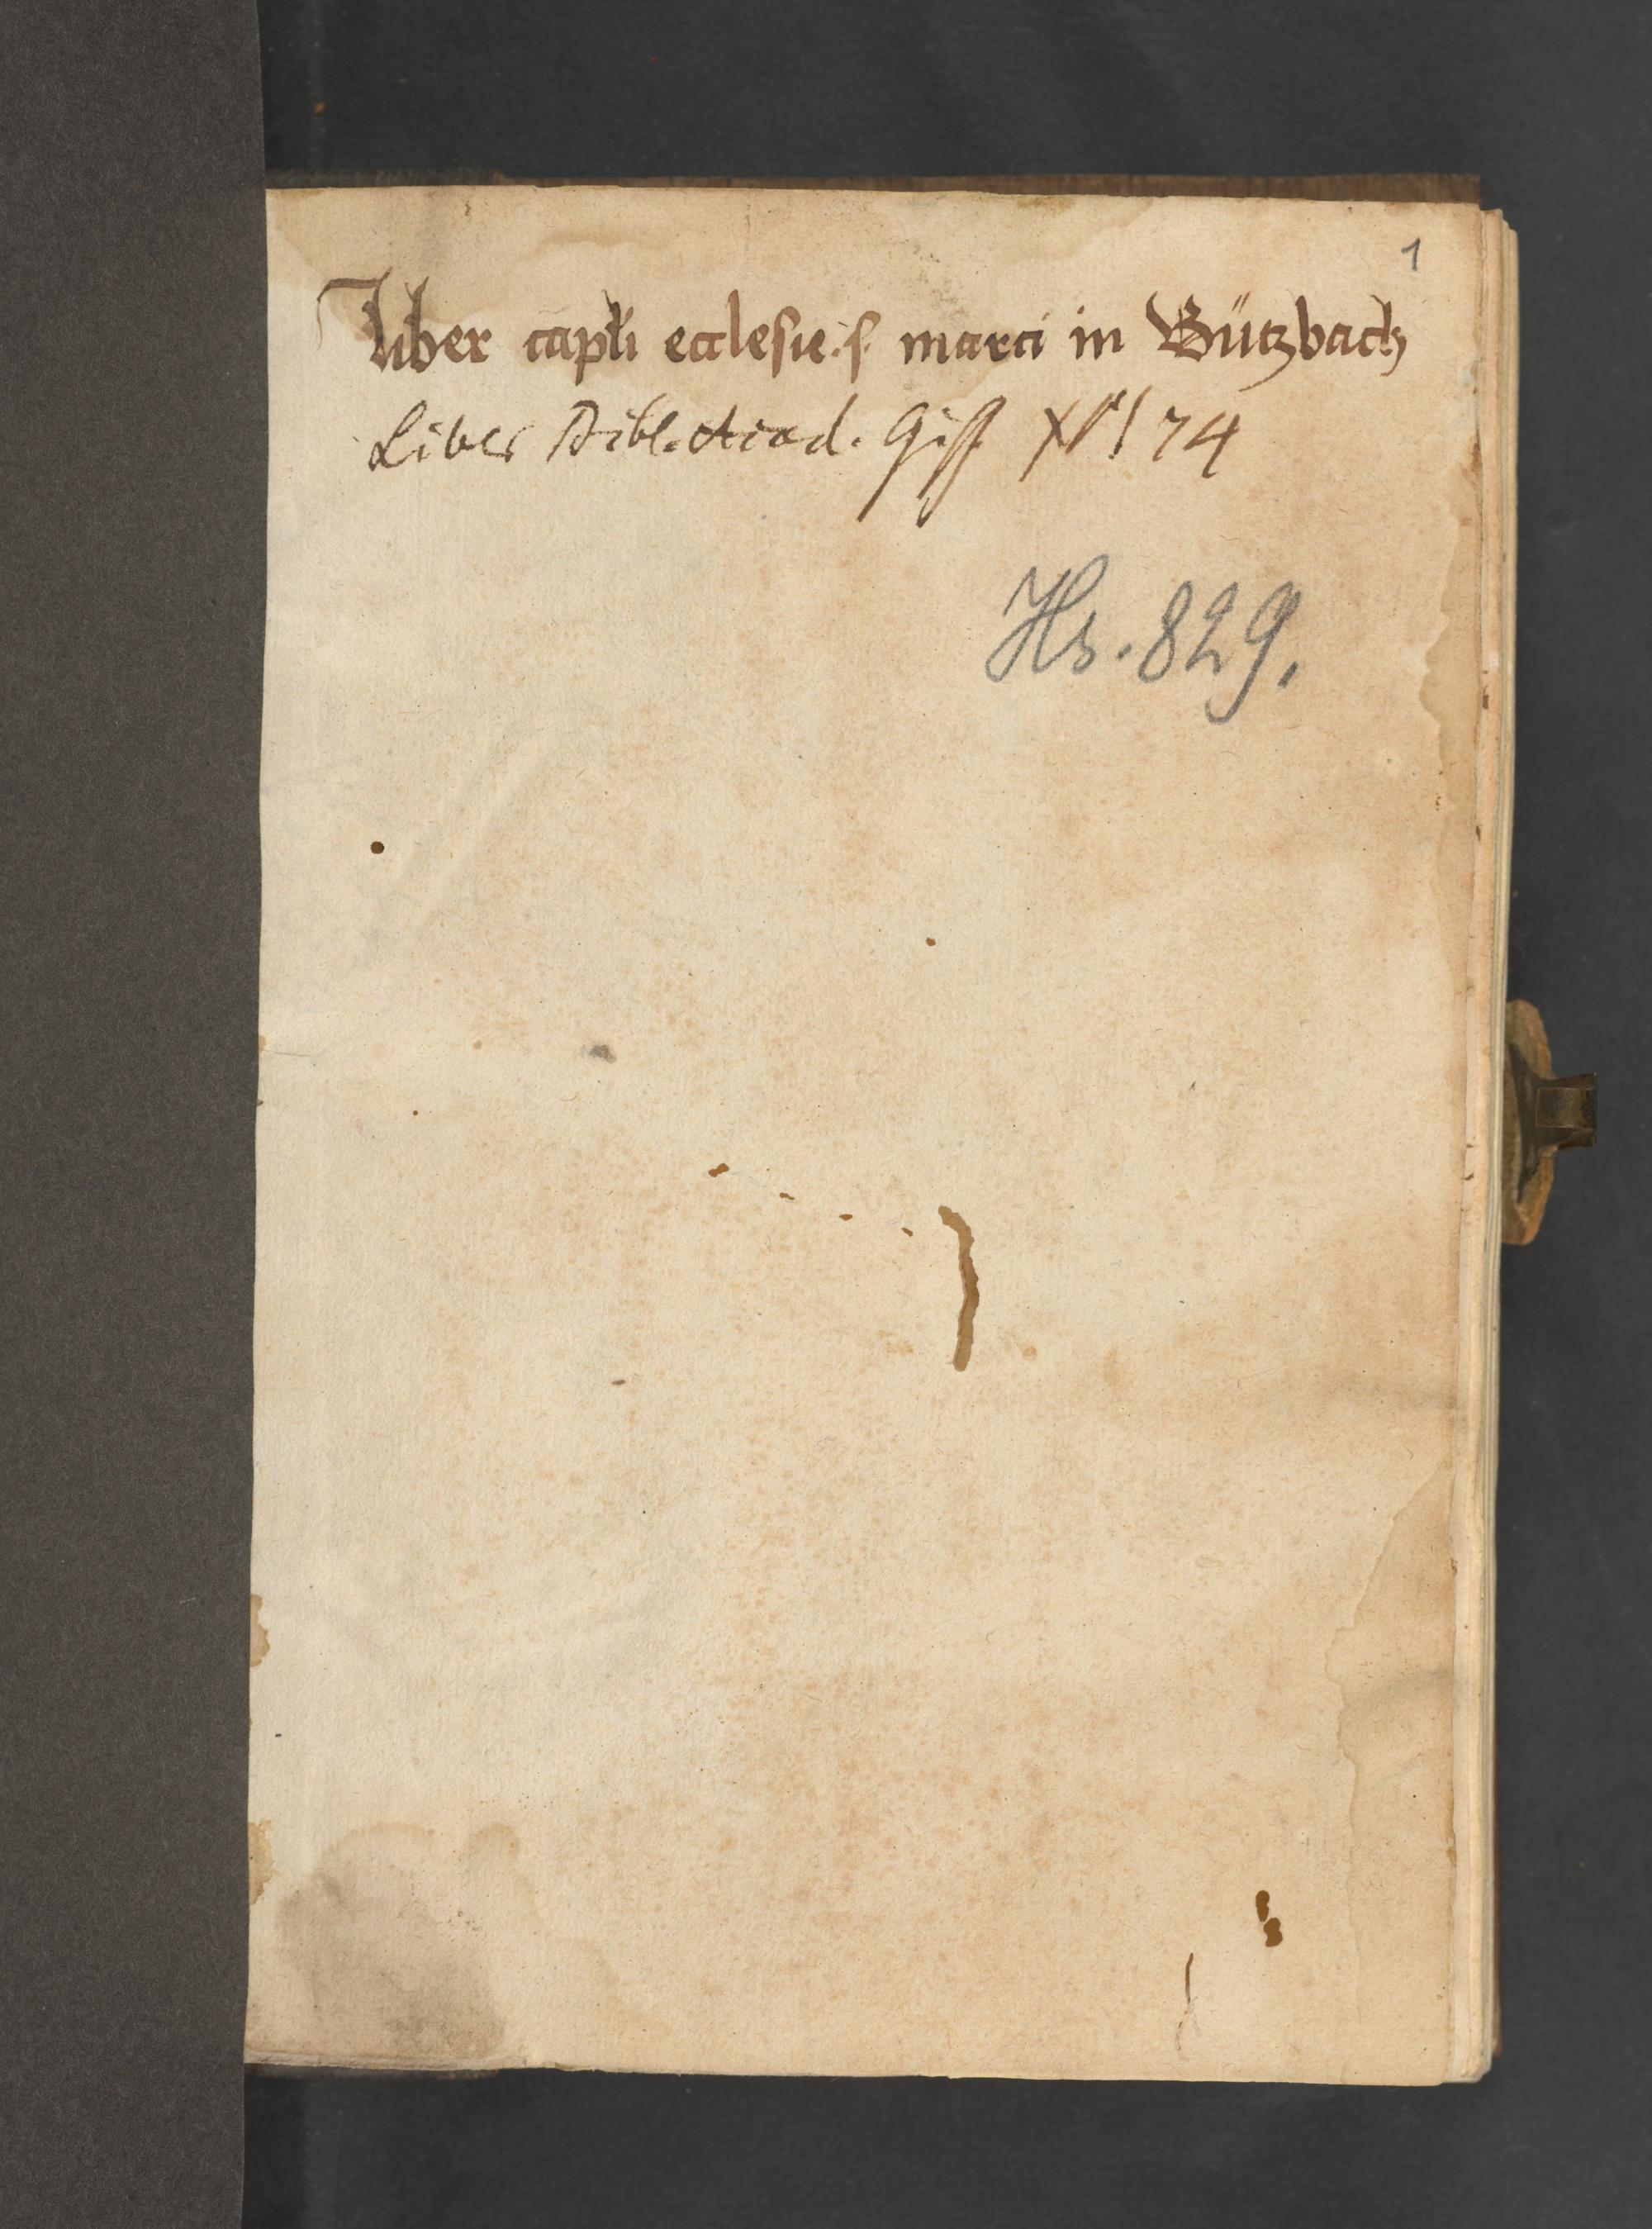 1
Liber capli ecclesie .s. marci in Bützbach
Liber Bibl. Acad. Giss.
Hs. 829.